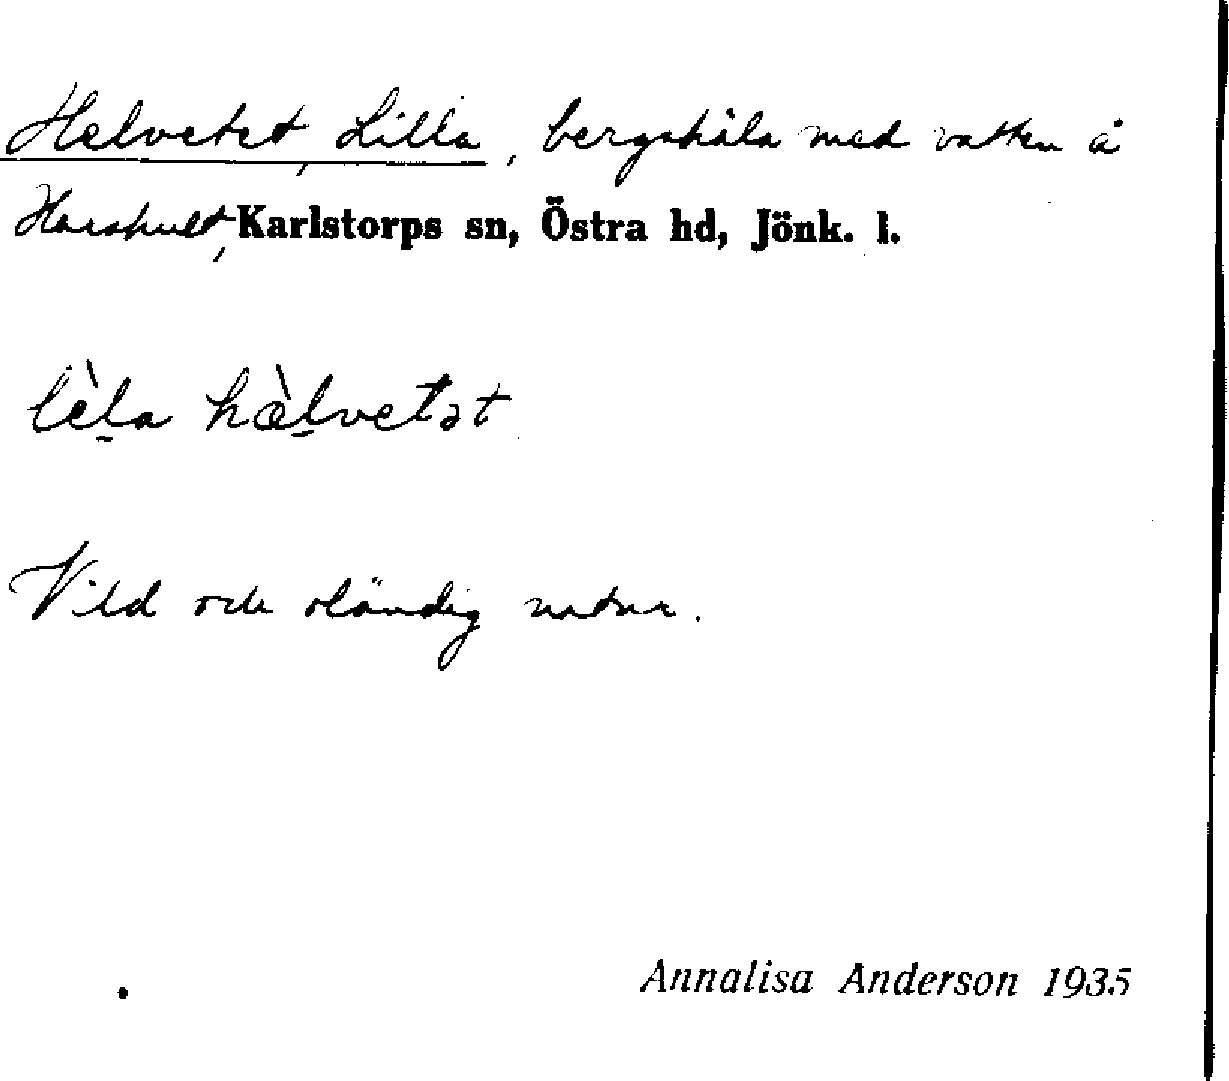 Helvetet, Lilla, bergshåla med vatten å
Harshult, Karlstorps sn, Östra hd, Jönk. l.
lèla hælvetət
Vild och oländig natur.
Annalisa Anderson 1935